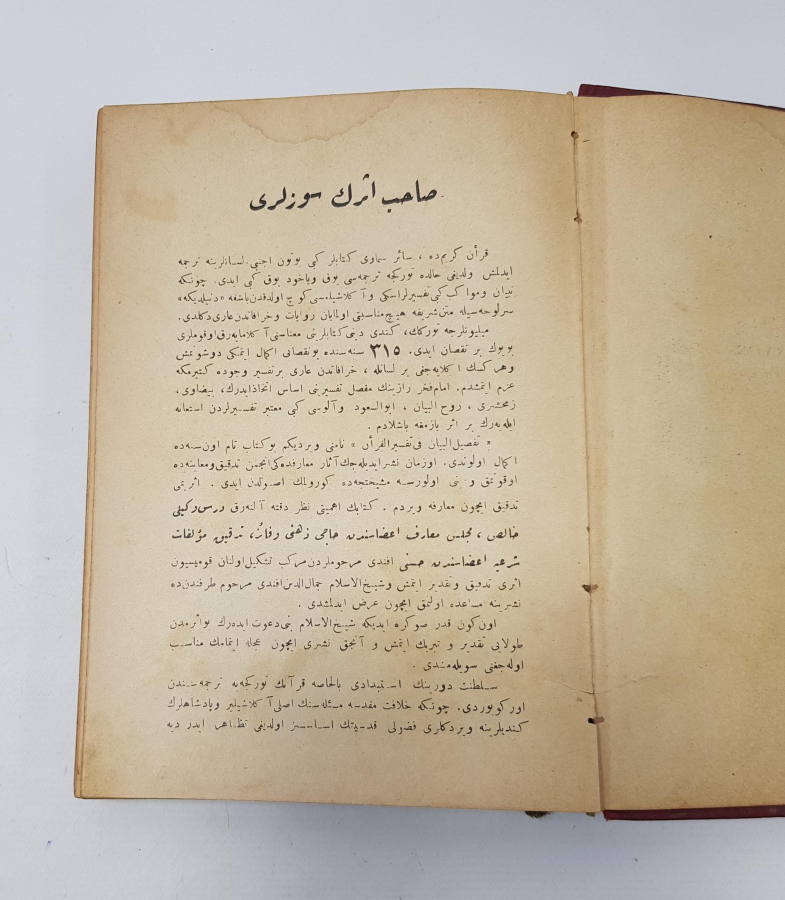 صاحب اثرك سوزلری
قرآن كریم‌ده ، سائر سماوی كتابلر كبی بوتون اجنبی لسانلرینه ترجمه
ایدلمش ولدیغی حالده توركجه ترجمه‌سی یوق ویاخود یوق كبی ایدی. چونكه
تبیان ومواكب كبی تفسیرلر اسكی و آ كلاشیلماسی كوچ اولدقدن باشقه «دنیلدیكه»
سرلوحه‌سیله متن شریفه هیچ مناسبتی اولمایان روایات وخرافاتدن عاری دكلدی.
میلیونلرجه توركك، كندی دینی كتابلرینی معناسنی آ كلامایه‌رق اوقوملری
بویوك بر نقصان ایدی. ٣١٥ سنه‌سنده بونقصانی اكمال ایتمكی دوشونمش
وهر كسك ا كلایه‌جغی بر لسانله ، خرافاتدن عاری برتفسیر وجوده كتیرمكه
عزم ایتمشدم. امام فخر رازینك مفصل تفسیرینی اساس اتخاذ ایدرك، بیضاوی،
زمخشری ، روح البیان ، ابوالسعود وآلوسی كبی معتبر تفسیرلردن استعانه
ایله‌یه‌رك بر اثر یازمغه باشلادم .
« تفصیل البیان فی تفسیر القرآن » نامنی ویردیكم بوكتاب تام اون سنه‌ده
اكمال اولوندی. اوزمان نشر ایدیله‌جك آثار معارفده‌كی انجمن تدقیق ومعاینه‌ده
اوقونمق و دینی اولورسه مشیختجه‌ده كورولمك اصولدن ایدی . اثریمی
تدقیق ایچون معارفه ویردم . كتابك اهمیتی نظر دقته آلنه‌رق درس وكیلی
خالص ، مجلس معارف اعضاسندن حاجی ذهنی وفائز، تدقیق مؤلفات
شرعیه اعضاسندن حسنی افندی مرحوملردن مركب تشكیل اولنان قومیسیون
اثری تدقیق وتقدیر ایتمش وشیخ الاسلام جمال الدین افندی مرحوم طرفندن‌ده
نشرینه مساعده اولنمق ایچون عرض ایدلمشدی .
اون كون قدر صوكره ایدیكه شیخ الاسلام بنی دعوت ایده‌رك بواثرمدن
طولایی تقدیر و تبریك ایتمش و آنجق نشری ایچون عجله ایتمامك مناسب
اوله‌جغنی سویله‌مشدی .
سلطنت دورینك استبدادی بالخاصه قرآنك توركجه‌یه ترجمه‌سندن
اوركویوردی. چونكه خلافت مقدسه مسئله‌سنك اصلی آ كلاشیلیر وپادشاهلرك
كندیلرینه ویردكلری فضولی قدسیتك اساسسز اولدیغی تظاهر ایدر دیه